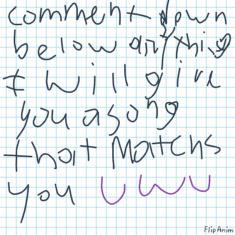 comment down
below anything
I will give
you a song
that matchs
you UwU
FlipAnim